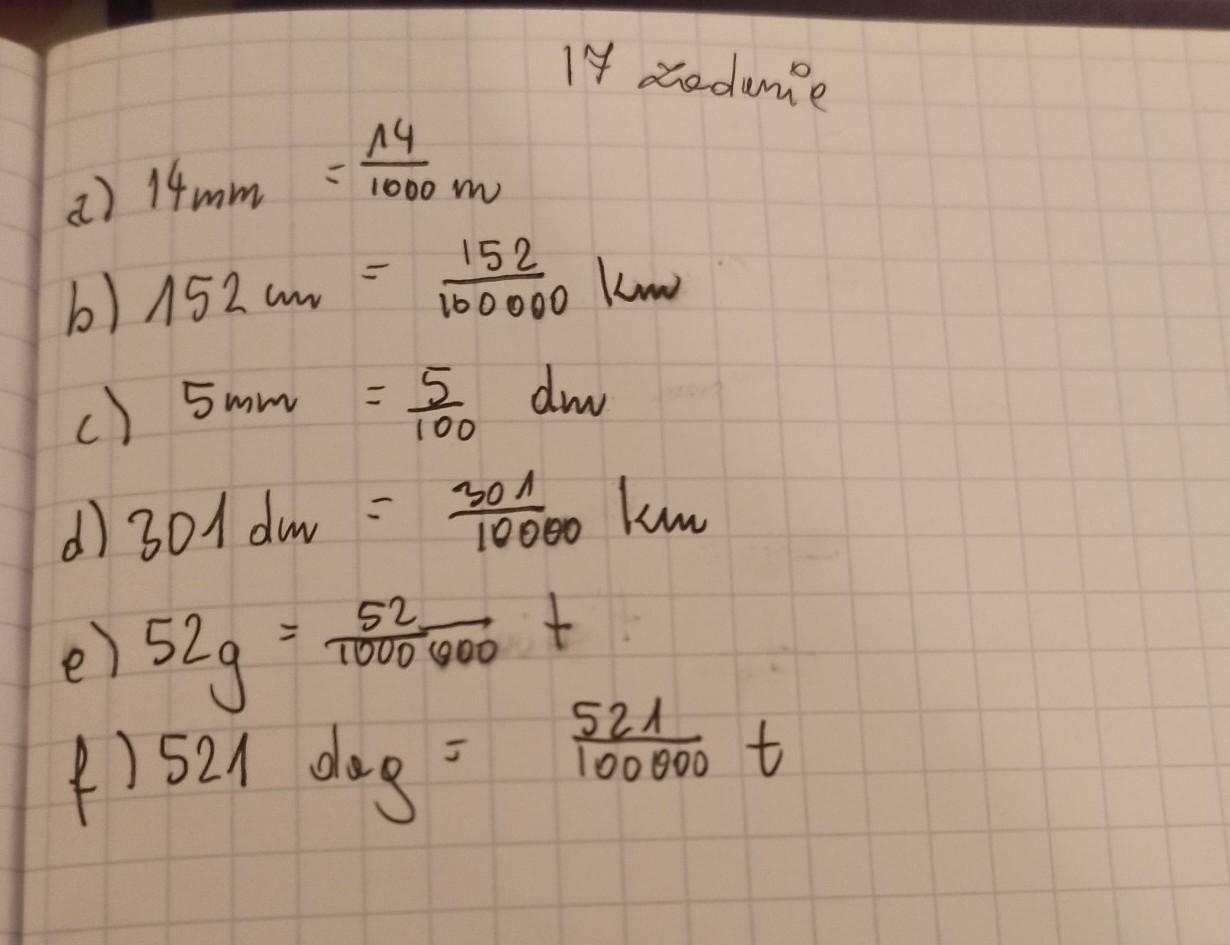 17 zadanie
a) 14mm = 14/1000 m
b) 152 cm = 152/100000 km
c) 5mm = 5/100 dm
d) 301 dm = 301/10000 km
e) 52g = 52/1000 000 t
f) 521 dag = 521/100000 t